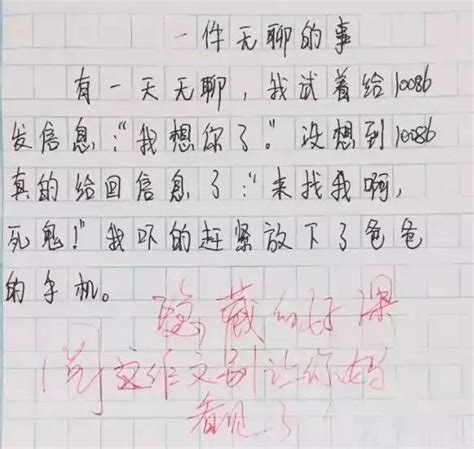 一件无聊的事
有一天无聊，我试着给10086
发信息："我想你了。"没想到10086
真的给回信息了："来找我啊，
死鬼！"我吓的赶紧放下了爸爸
的手机。
隐藏的好深
这文作文别让你妈
看见了